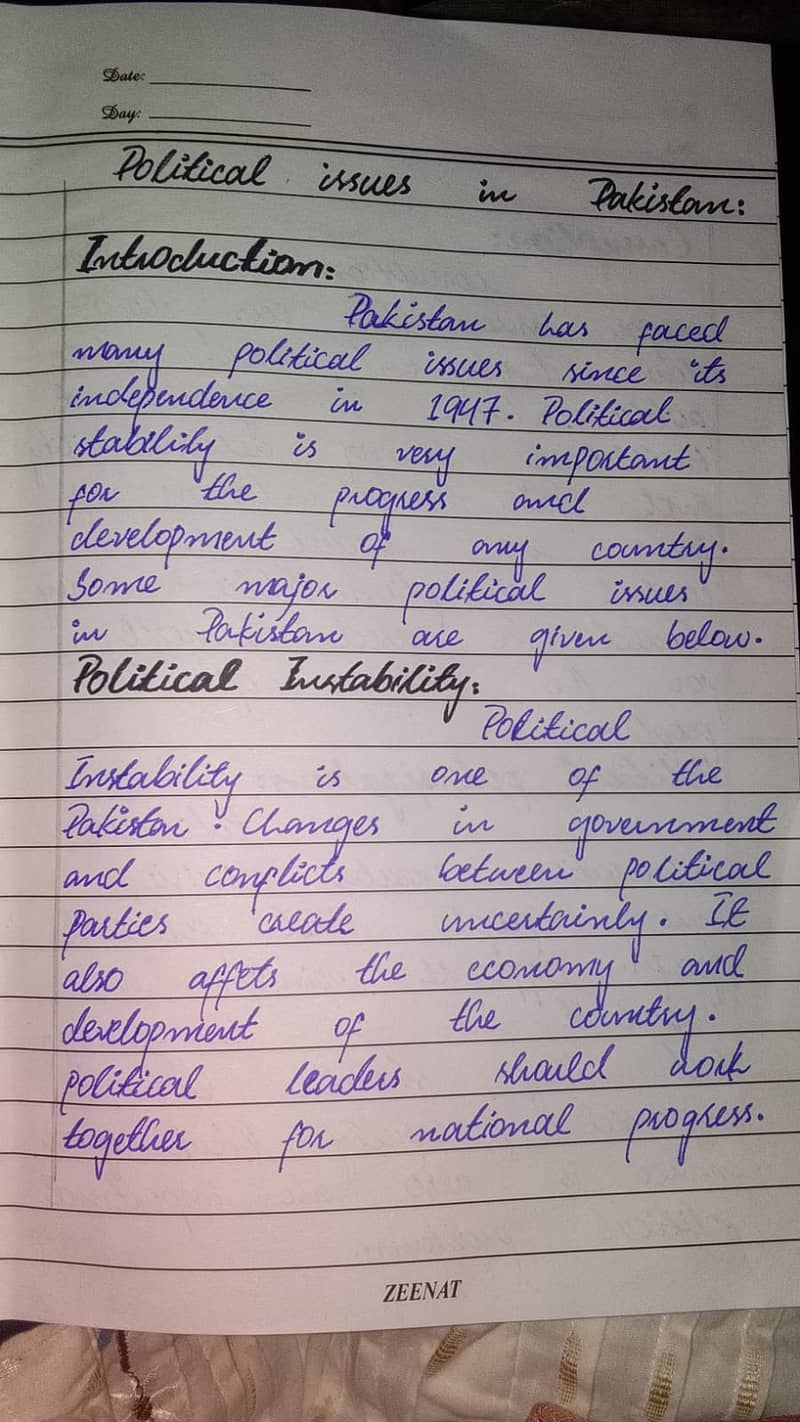 Date:
Day:
Political issues in Pakistan:
Introduction:
Pakistan has faced
many political issues since its
independence in 1947. Political
stability is very important
for the progress and
development of any country.
Some major political issues
in Pakistan are given below.
Political Instability:
Political
Instability is one of the
Pakistan. Changes in government
and conflicts between political
parties create uncertainly. It
also affets the economy and
development of the country.
political leaders should work
together for national progress.
ZEENAT